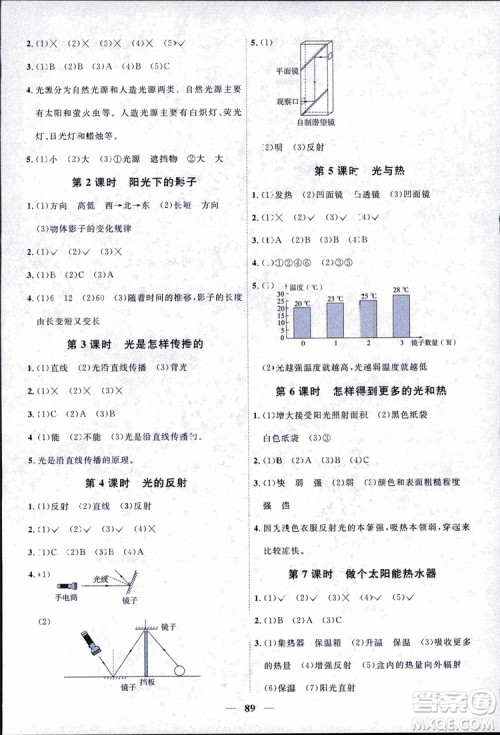 2. (1)× (2)✓ (3)✓ (4)× (5)✓
3. (1)B (2)C (3)A
4. 光源分为自然光源和人造光源两类。自然光源主要
有太阳和萤火虫等。人造光源主要有白炽灯、荧光
灯、日光灯和蜡烛等。
5. (1)小 大 (2)大 (3)①光源 遮挡物 ②大 大
第 2 课时 阳光下的影子
1. (1)方向 高低 西→北→东 (2)慢 快
(3)物体影子的变化规律
2. (1)✓ (2)× (3)✓ (4)×
3. (1)A (2)B (3)A
4. (1)6 12 (2)60 (3)随着时间的推移,影子的长度
由长变短又变长
第 3 课时 光是怎样传播的
1. (1)直线 (2)光沿直线传播 (3)背光
2. (1)✓ (2)✓ (3)×
3. (1)B (2)A (3)C
4. (1)能 (2)不能 (3)光是沿直线传播的
5. 光是沿直线传播的原理。
第 4 课时 光的反射
1. (1)反射 (2)直线 (3)反射
2. (1)✓ (2)✓ (3)✓ (4)×
3. (1)B (2)B (3)A
4. (1)
光线
手电筒
镜子
(2)
镜子
镜子
挡板
5. (1)
平面镜
观察口
自制潜望镜
(2)明 (3)反射
第 5 课时 光与热
1. (1)发热 (2)凹面镜 凸透镜 (3)凹面镜
2. (1)× (2)✓ (3)✓ (4)✓
3. (1)B (2)A (3)B
4. (1)①②④⑥ (2)③⑤
5. (1)
温度(℃)
30
25
20
15
10
5
0
20 ℃
23 ℃
25 ℃
28 ℃
0
1
2
3
镜子数量(面)
(2)光越强温度就越高,光越弱温度就越低
第 6 课时 怎样得到更多的光和热
1. (1)增大接受阳光照射面积 (2)黑色纸袋
白色纸袋 (3)①③
2. (1)C (2)A (3)B
3. (1)快 弱 强 (2)弱 (3)颜色和表面粗糙程度
强 强
4. 因为浅色衣服反射光的本领强,吸热本领弱,穿起来
比较凉快。
第 7 课时 做个太阳能热水器
1. (1)✓ (2)✓ (3)× (4)✓ (5)✓
2. (1)B (2)A (3)B
3. (1)集热器 保温箱 (2)升温 保温 (3)吸收更多
的热量 (4)增强反射 (5)盒内的热量向外辐射
(6)保温 (7)阳光直射
89